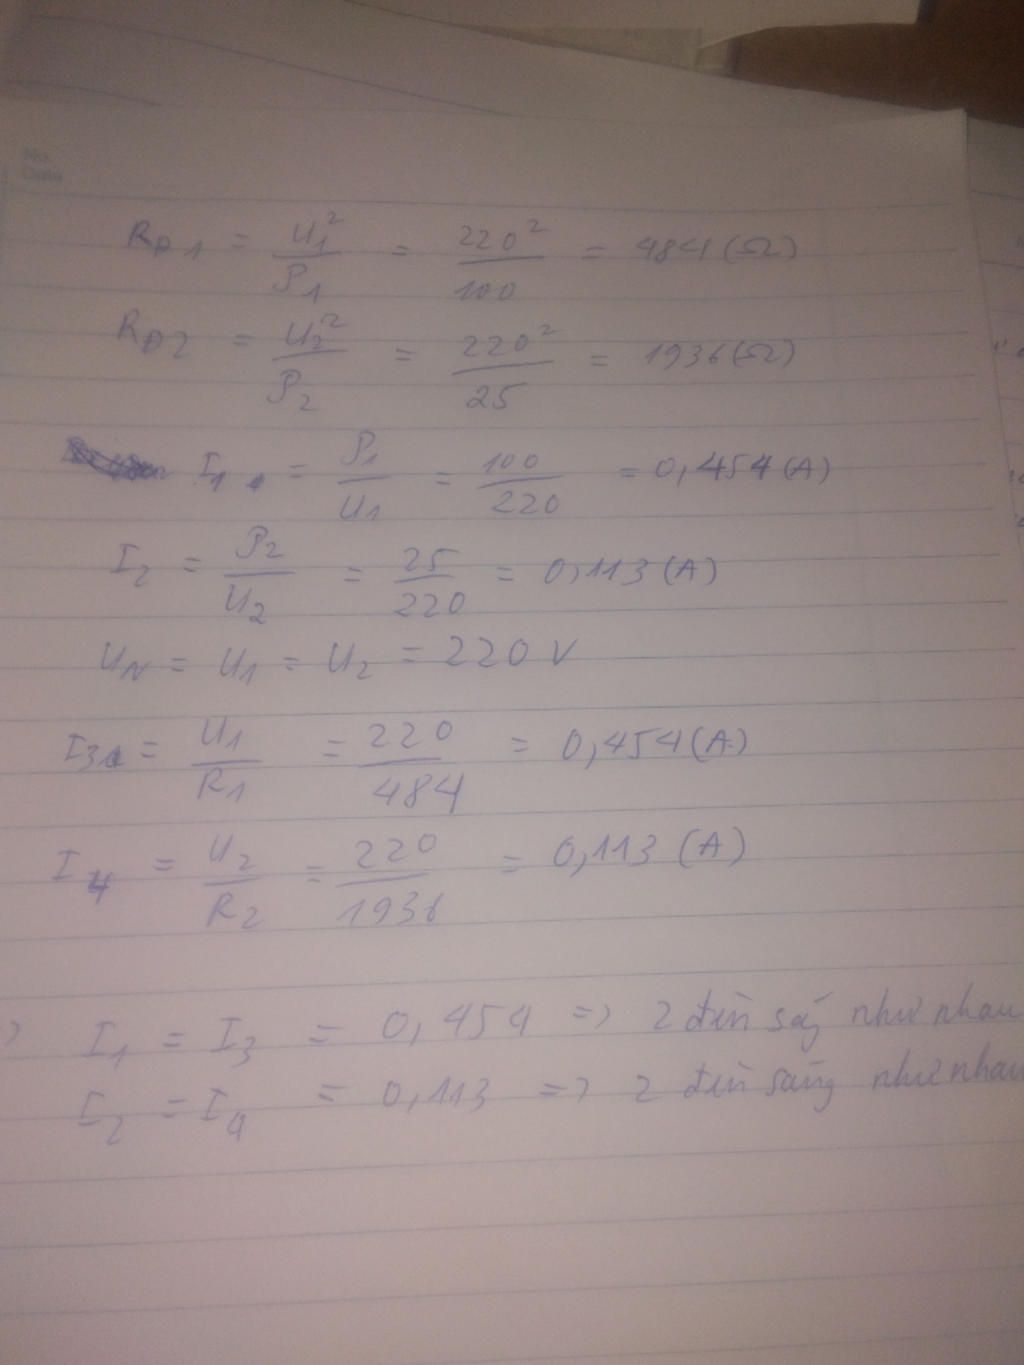 No.
Date
R_Đ1 = U₁²/P₁ = 220²/100 = 484 (Ω)
R_Đ2 = U₂²/P₂ = 220²/25 = 1936 (Ω)
I₁ = P₁/U₁ = 100/220 = 0,454 (A)
I₂ = P₂/U₂ = 25/220 = 0,113 (A)
U_N = U₁ = U₂ = 220 V
I₃ = U₁/R₁ = 220/484 = 0,454 (A)
I₄ = U₂/R₂ = 220/1936 = 0,113 (A)
I₁ = I₃ = 0,454 => 2 đèn ság như nhau
I₂ = I₄ = 0,113 => 2 đèn sáng như nhau